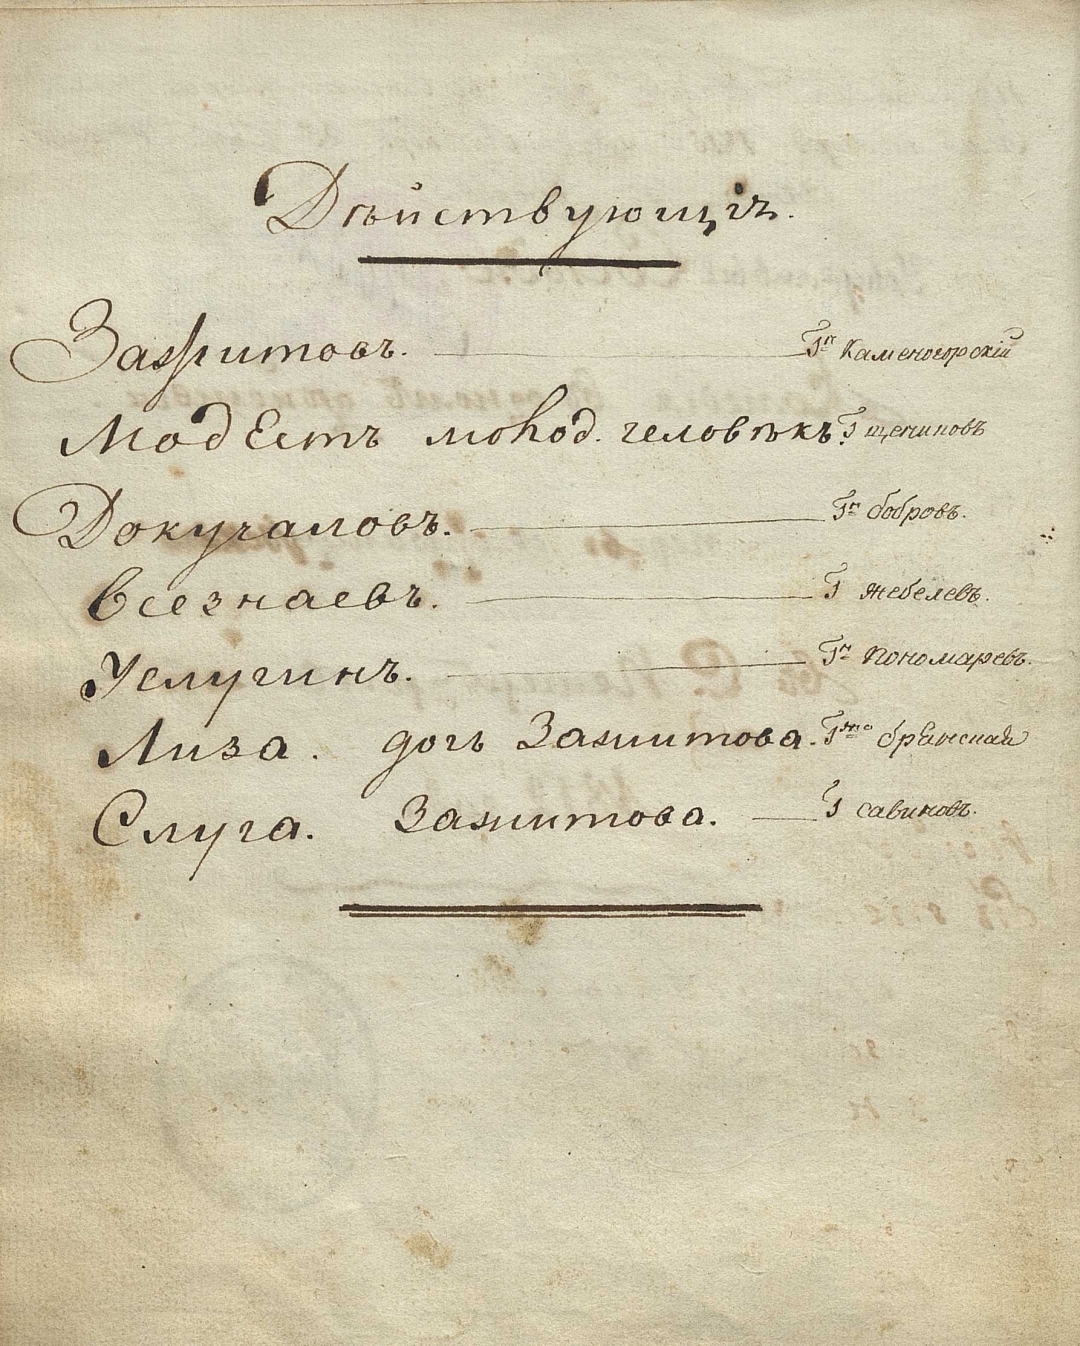 Дѣйствующіѣ.
Зажитовъ. Гⁿ Каменогорскій
Модестъ молод. человѣкъ. Г щениковъ
Докучаловъ. Гⁿ бобровъ.
Всезнаевъ. Г жебелевъ.
Услугинъ. Гⁿ Пономаревъ.
Лиза. дочь Зажитова. Гжа бранская
Слуга. Зажитова. Г савиновъ.